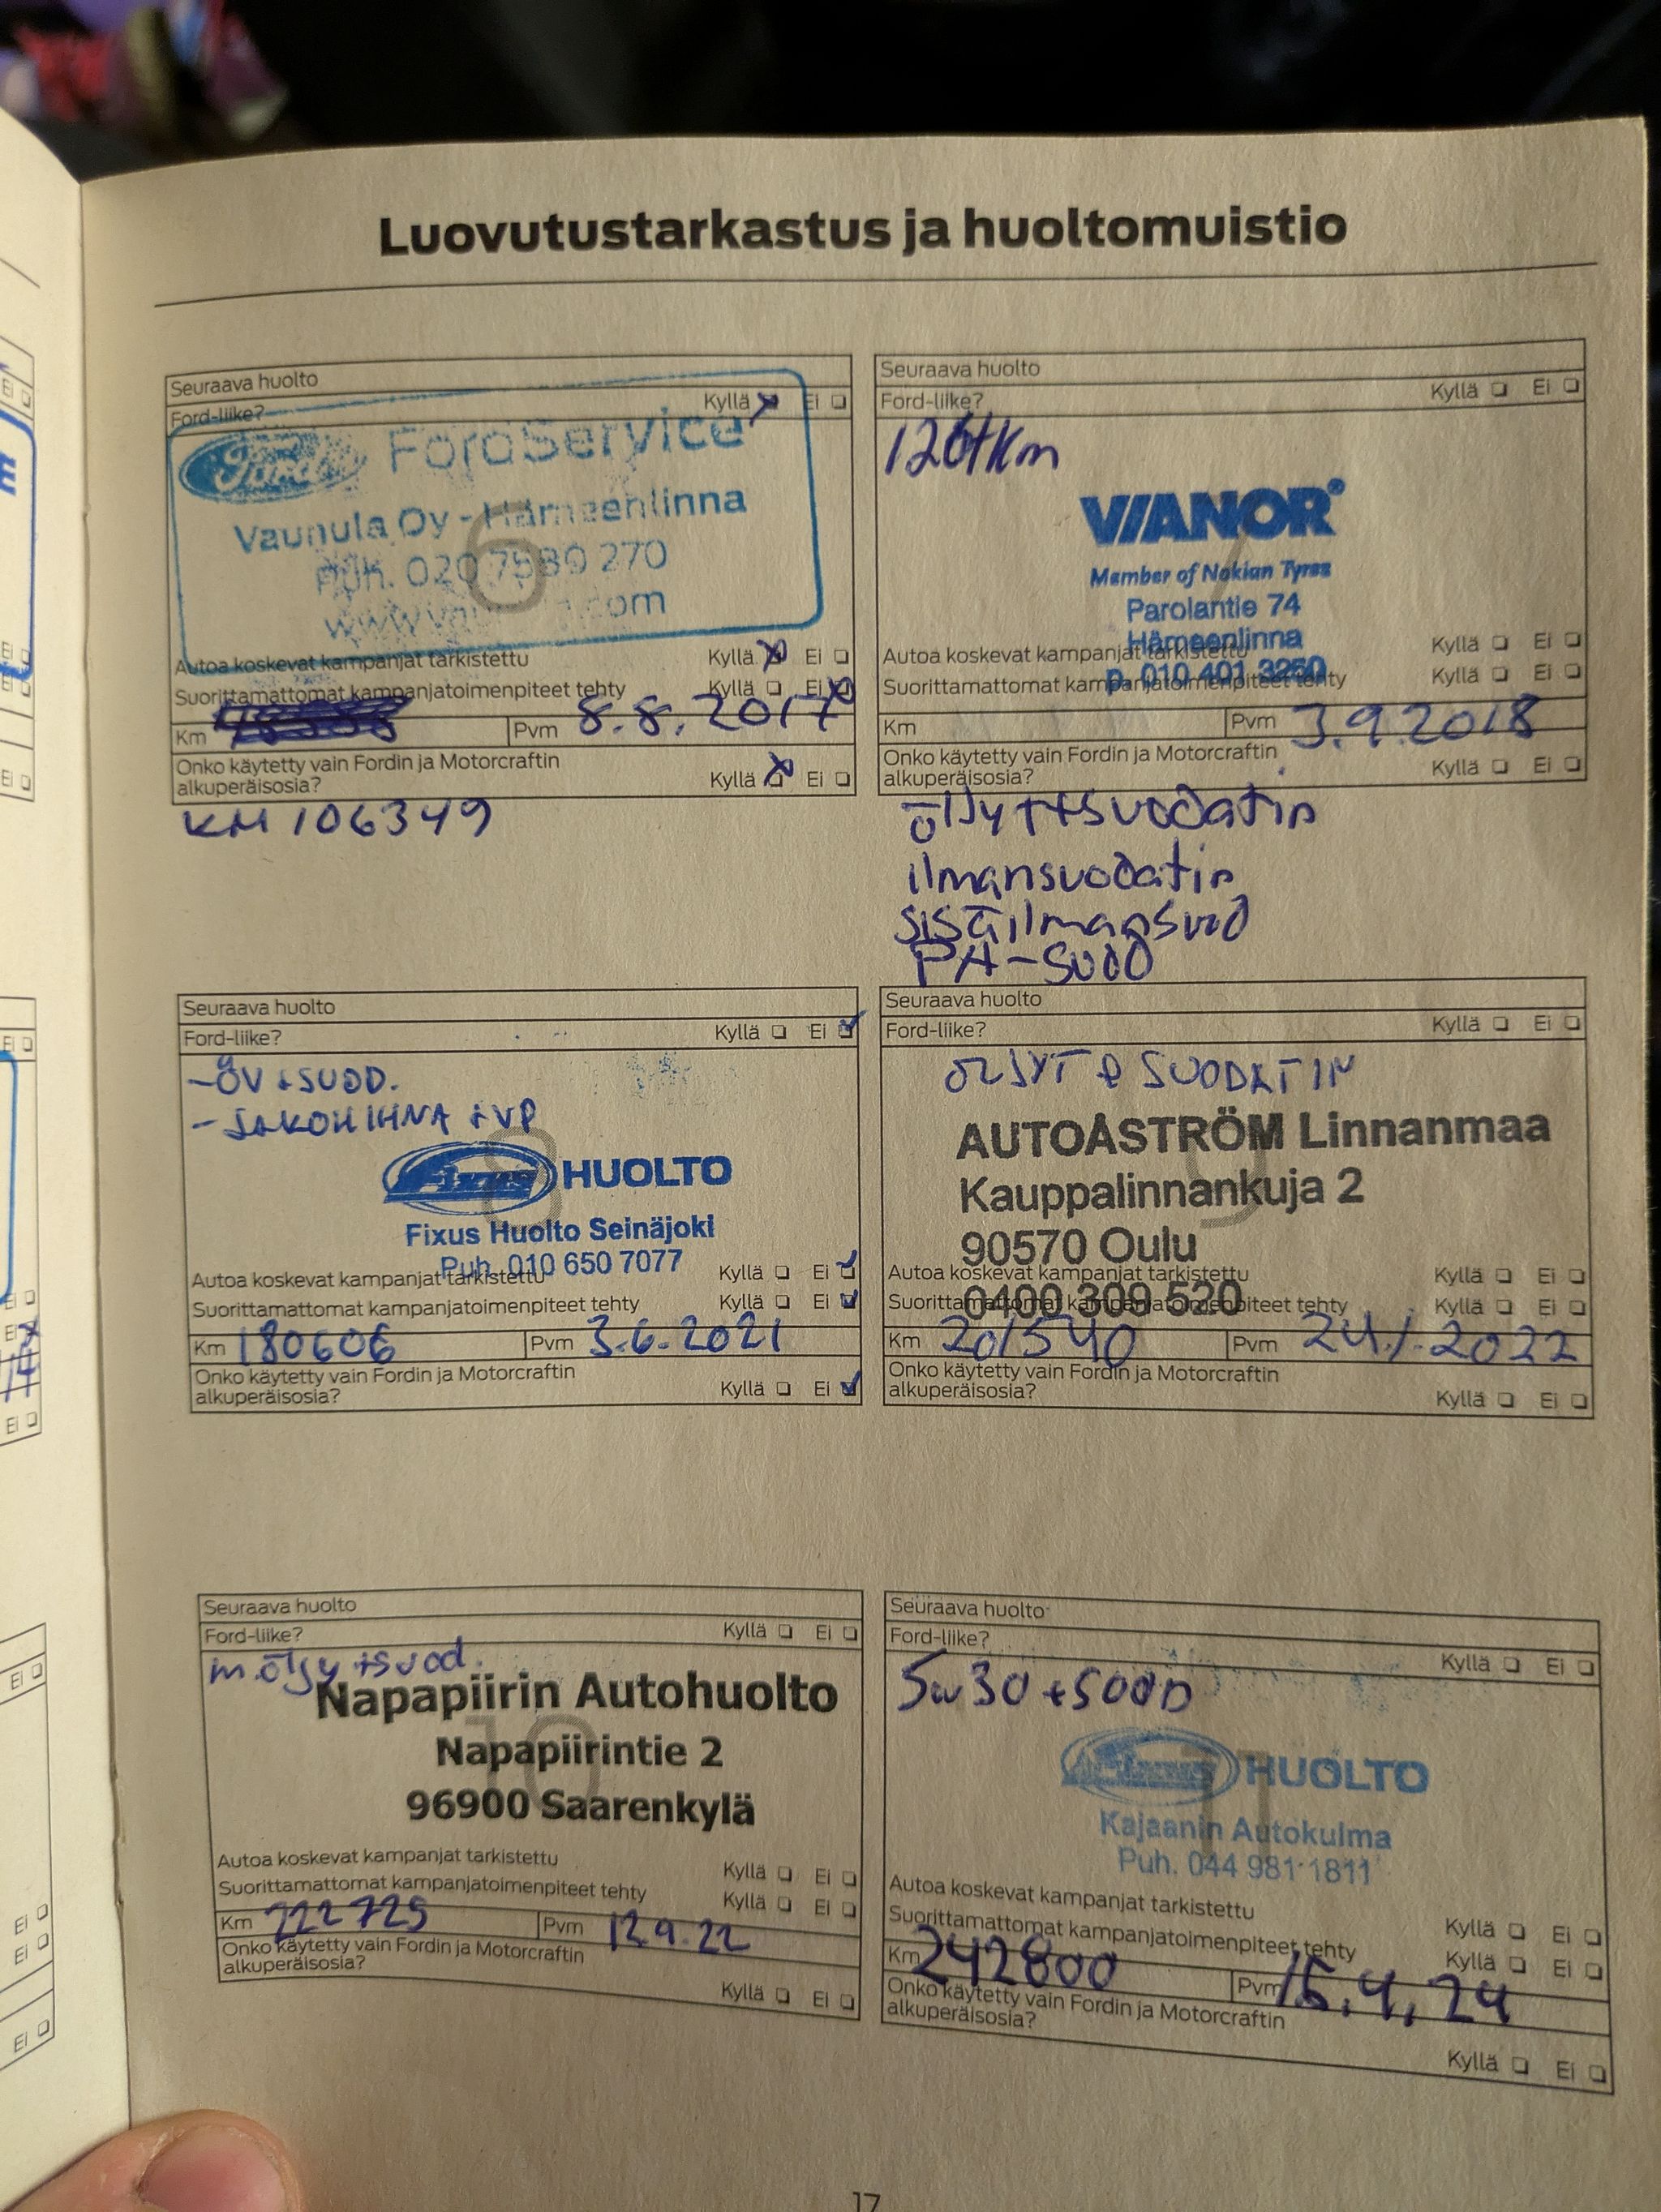 Luovutustarkastus ja huoltomuistio
Seuraava huolto
Ford-liike? Kyllä Ei
Ford FordService
Vaunula Oy - Hämeenlinna
Puh. 020 7580 270
6
Autoa koskevat kampanjat tarkistettu Kyllä Ei
Suorittamattomat kampanjatoimenpiteet tehty Kyllä Ei
Km Pvm 8.8.2017
Onko käytetty vain Fordin ja Motorcraftin
alkuperäisosia? Kyllä Ei
KM 106349
Seuraava huolto
Ford-liike? Kyllä Ei
126tkm
VIANOR
Member of Nokian Tyres
Parolantie 74
Hämeenlinna
p. 010 401 3260
7
Autoa koskevat kampanjat tarkistettu Kyllä Ei
Suorittamattomat kampanjatoimenpiteet tehty Kyllä Ei
Km Pvm 3.9.2018
Onko käytetty vain Fordin ja Motorcraftin
alkuperäisosia? Kyllä Ei
öljyt+suodatin
ilmansuodatin
sisäilmansuod
PA-suod
Seuraava huolto
Ford-liike? Kyllä Ei
-ÖV+SUOD.
-JAKOHIHNA +VP
8
Fixus HUOLTO
Fixus Huolto Seinäjoki
Puh. 010 650 7077
Autoa koskevat kampanjat tarkistettu Kyllä Ei
Suorittamattomat kampanjatoimenpiteet tehty Kyllä Ei
Km 180606 Pvm 3.6.2021
Onko käytetty vain Fordin ja Motorcraftin
alkuperäisosia? Kyllä Ei
Seuraava huolto
Ford-liike? Kyllä Ei
ÖLJYT & SUODATIN
AUTOÅSTRÖM Linnanmaa
Kauppalinnankuja 2
90570 Oulu
0400 309 520
9
Autoa koskevat kampanjat tarkistettu Kyllä Ei
Suorittamattomat kampanjatoimenpiteet tehty Kyllä Ei
Km 201540 Pvm 24.1.2022
Onko käytetty vain Fordin ja Motorcraftin
alkuperäisosia? Kyllä Ei
Seuraava huolto
Ford-liike? Kyllä Ei
m.öljy+suod.
Napapiirin Autohuolto
Napapiirintie 2
96900 Saarenkylä
10
Autoa koskevat kampanjat tarkistettu Kyllä Ei
Suorittamattomat kampanjatoimenpiteet tehty Kyllä Ei
Km 222725 Pvm 12.9.22
Onko käytetty vain Fordin ja Motorcraftin
alkuperäisosia? Kyllä Ei
Seuraava huolto
Ford-liike? Kyllä Ei
5w30+suod
Fixus HUOLTO
Kajaanin Autokulma
Puh. 044 981 1811
11
Autoa koskevat kampanjat tarkistettu Kyllä Ei
Suorittamattomat kampanjatoimenpiteet tehty Kyllä Ei
Km 242800 Pvm 16.4.24
Onko käytetty vain Fordin ja Motorcraftin
alkuperäisosia? Kyllä Ei
17